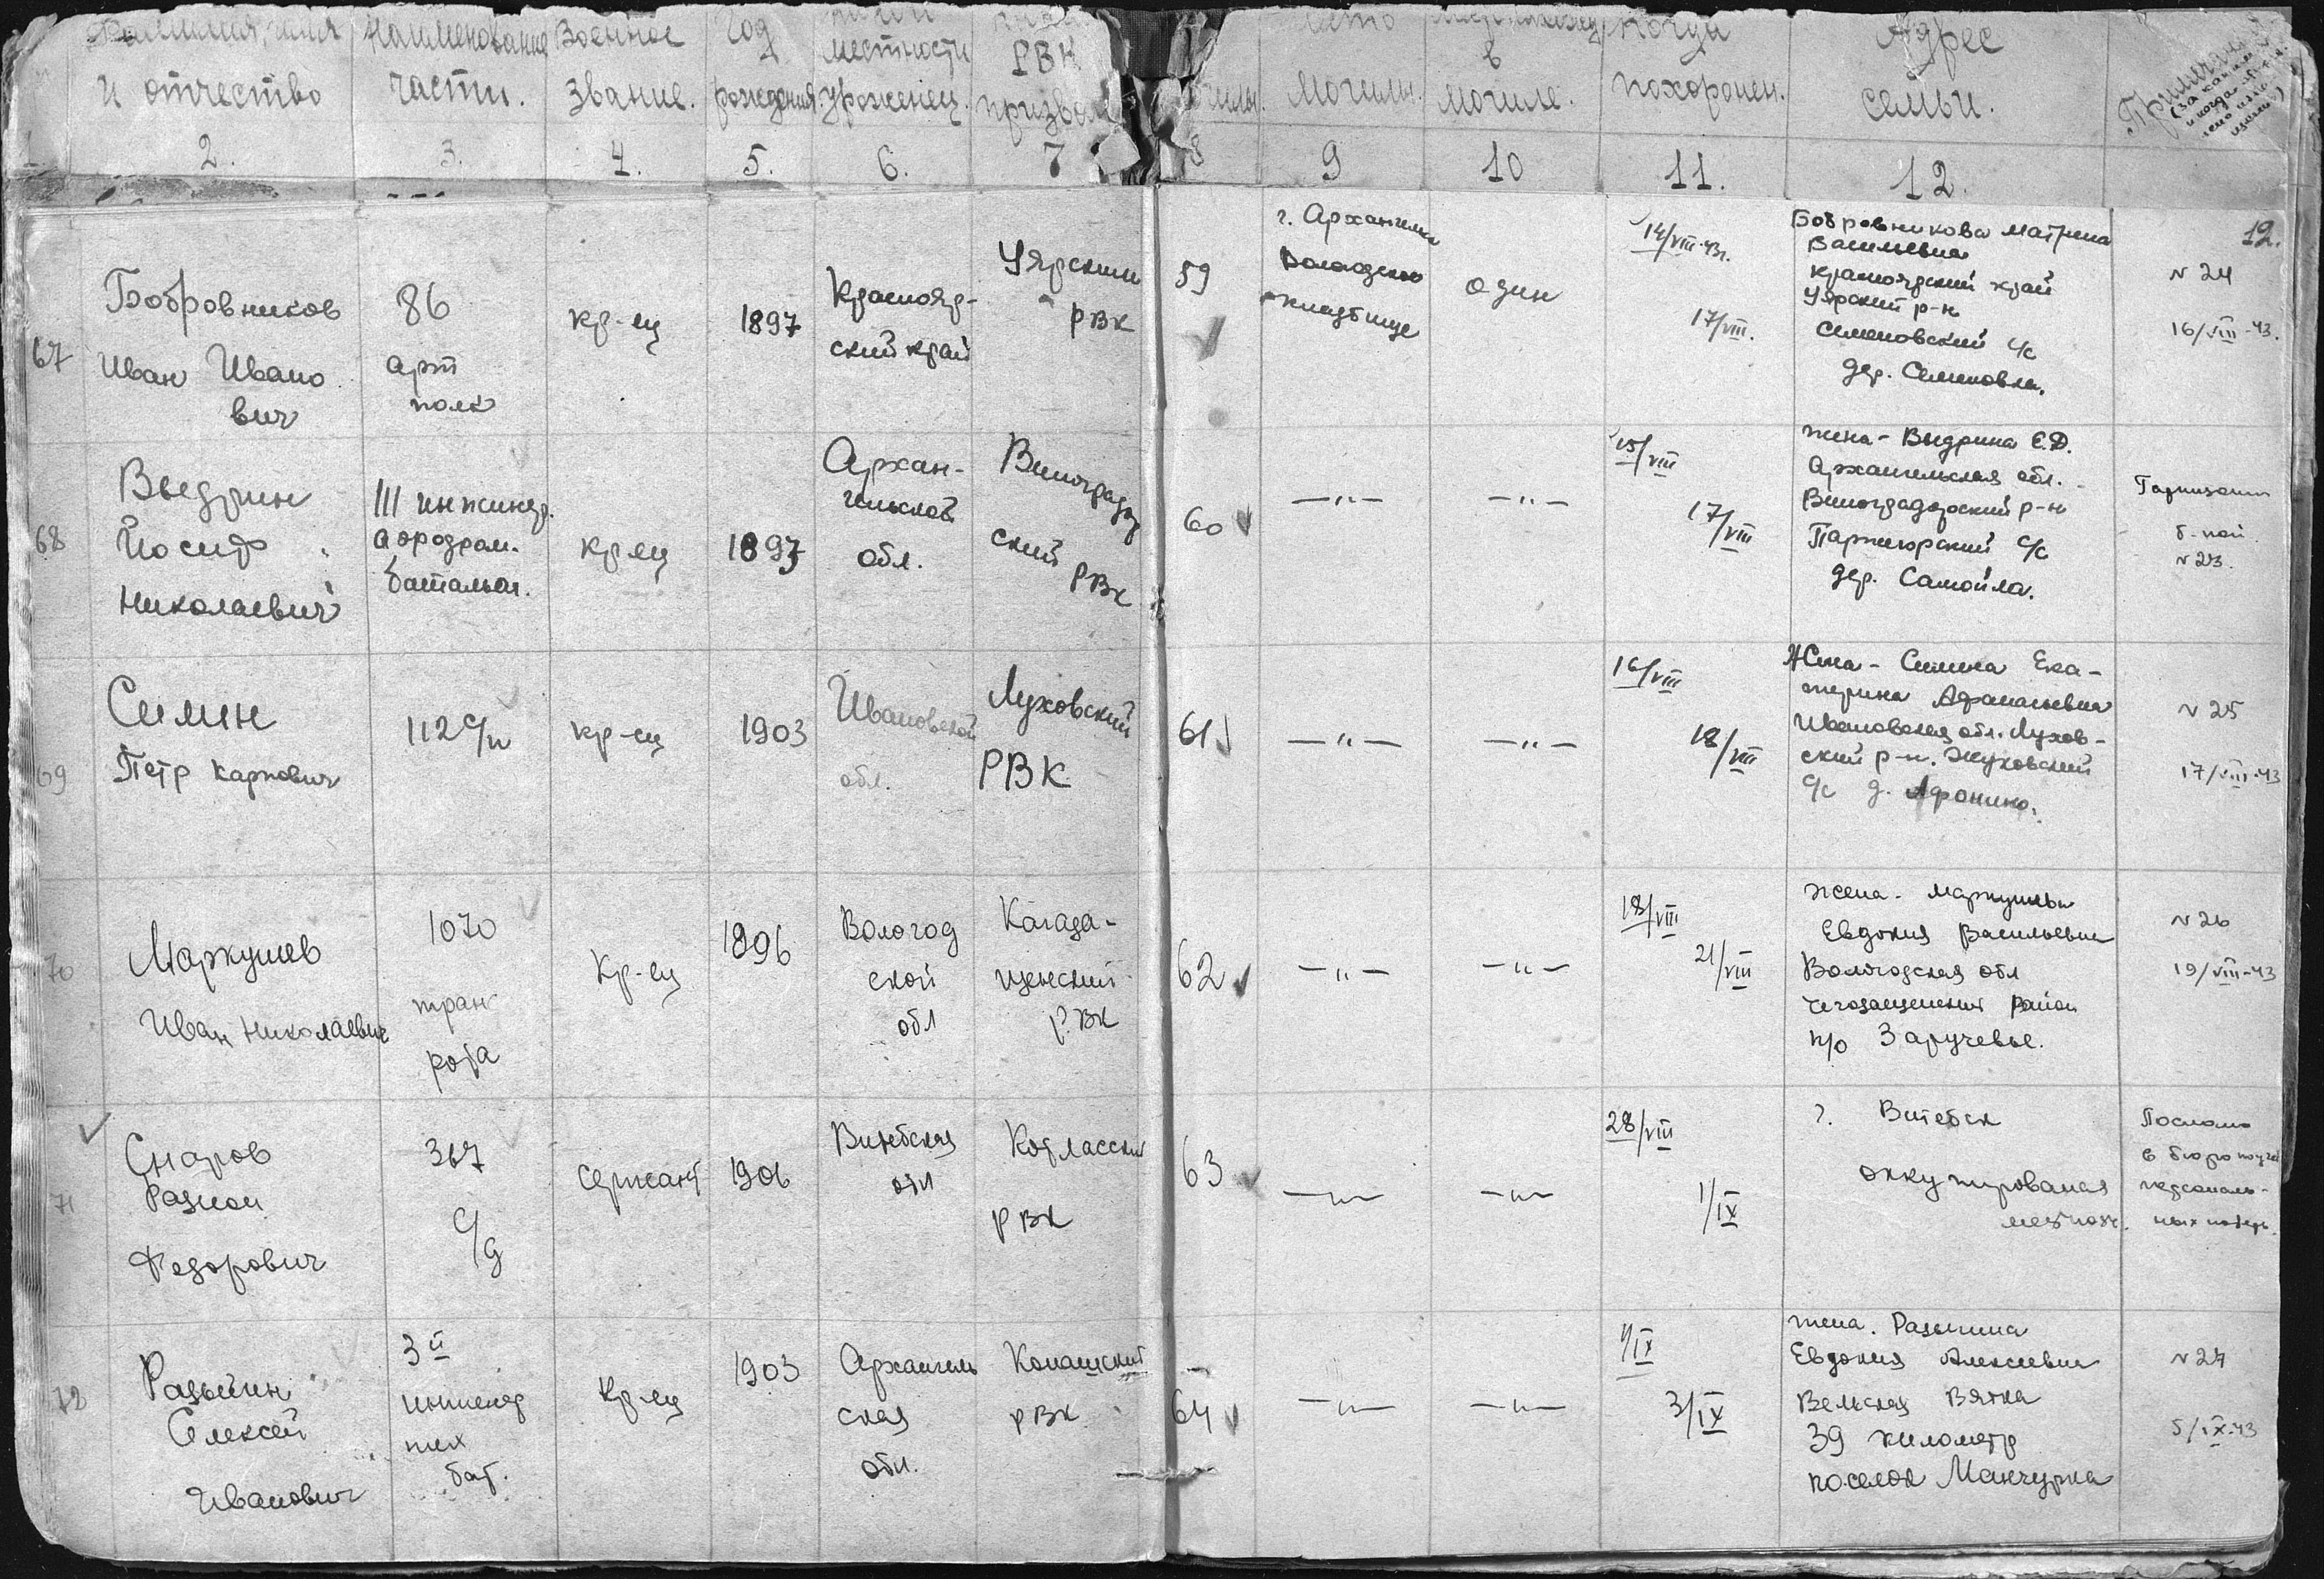 Фамилия, имя
и отчество
Наименование
части.
Военное
звание.
Год
рождения.
местности
уроженец.
РВК
призван
Место
могилы.
в
могиле.
Когда
похоронен.
Адрес
семьи.
Примечание
2. 3. 4. 5. 6. 7 8 9 10 11. 12.
12.
67
Бобровников
Иван Ивано
вич
86
арт
полк
кр-ец
1897
Краснояр-
ский край
Уярский
РВК
59
г. Архангельск
Вологодское
кладбище
один
14/VIII-43г.
17/VIII.
Бобровникова Матрена
Васильевна
Красноярский край
Уярский р-н
Семеновский с/с
дер. Семеновка.
N 24
16/VIII-43.
68
Выдрин
Йосиф
Николаевич
111 инжинер.
аэродром.
батальон.
кр-ец
1897
Архан-
гельской
обл.
Виноградов
ский
РВК
60
—"—
—"—
15/VIII
17/VIII
жена - Выдрина Е.Д.
Архангельская обл.
Виноградовский р-н
с/с
дер. Самойла.
N 23.
69
Силин
Петр Карпович
112 с/п
кр-ец
1903
Ивановской
обл.
Луховский
РВК
61
—"—
—"—
16/VIII
18/VIII
Жена - Силина Ека-
терина Афанасьевна
Ивановская обл. Лухов-
ский р-н. Жуковский
с/с д. Афонино.
N 25
17/VIII-43
70
Маркушев
Иван Николаевич
1070
тран
рота
Кр-ец
1896
Вологод
ской
обл
Кагада-
щенский
РВК
62
—"—
—"—
18/VIII
21/VIII
жена - Маркушева
Евдокия Васильевна
Вологодская обл
район
п/о Заручевье.
N 26
19/VIII-43
71
Снаров
Федорович
367
с/д
сержант
1906
Витебская
обл
Котласский
РВК
63
—"—
—"—
28/VIII
1/IX
г. Витебск
оккупированая
местност.
Послано
в бюро
персональ-
ных потерь.
72
Алексей
Иванович
3й
инженер
тех
бат.
Кр-ец
1903
Архангель
ская
обл.
Конашский
РВК
64
—"—
—"—
1/IX
3/IX
жена.
Евдокия Алексеевна
Вельская Вятка
39 километр
поселок Манчурка
N 27
5/IX-43